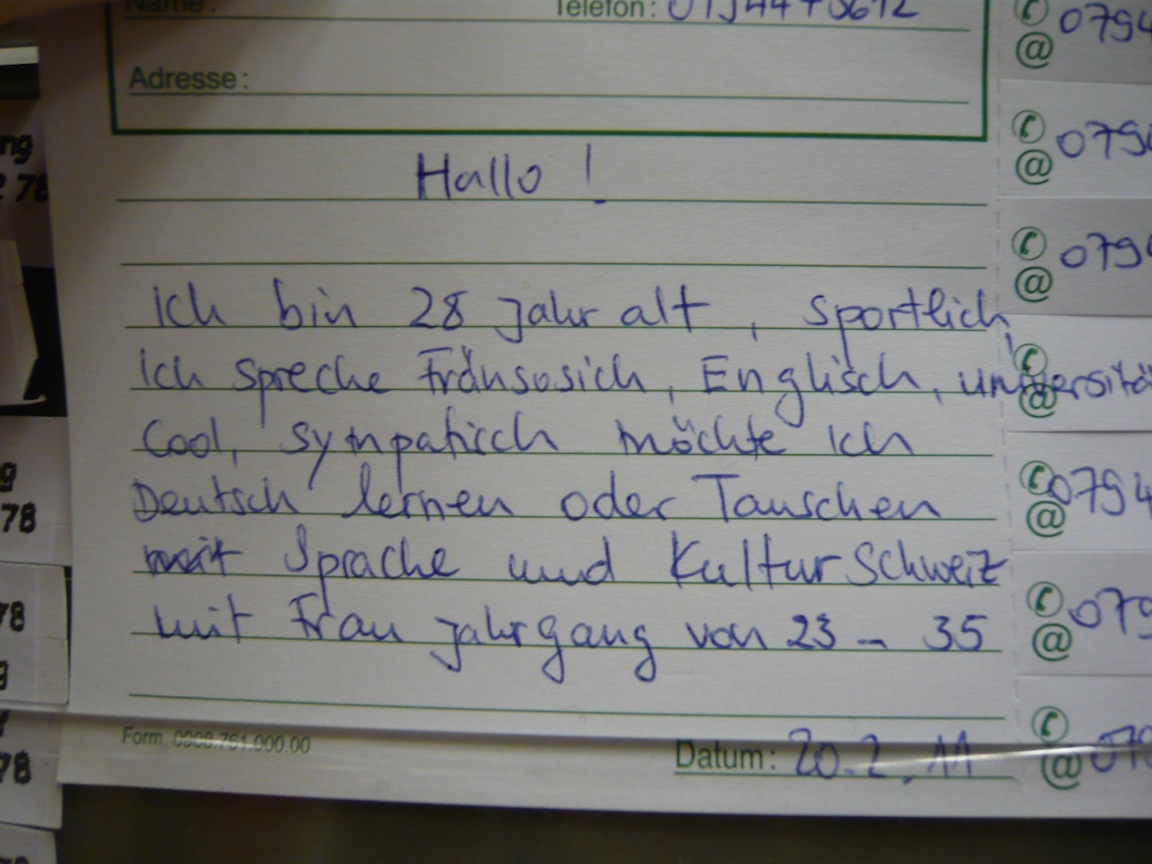 Name:
Telefon:
Adresse:
Hallo !
Ich bin 28 Jahr alt , sportlich,
Ich spreche Fränsosich, Englisch, universitä
Cool, sympatisch möchte ich
Deutsch lernen oder Tauschen
mit Sprache und Kultur Schweiz
mit Frau jahrgang von 23 - 35
Form. 0908.761.000.00
Datum: 20.2.11
@ 0794
@ 079
@ 079
@
@ 0794
@ 079
@ 079
ng
78
g
78
78
g
78